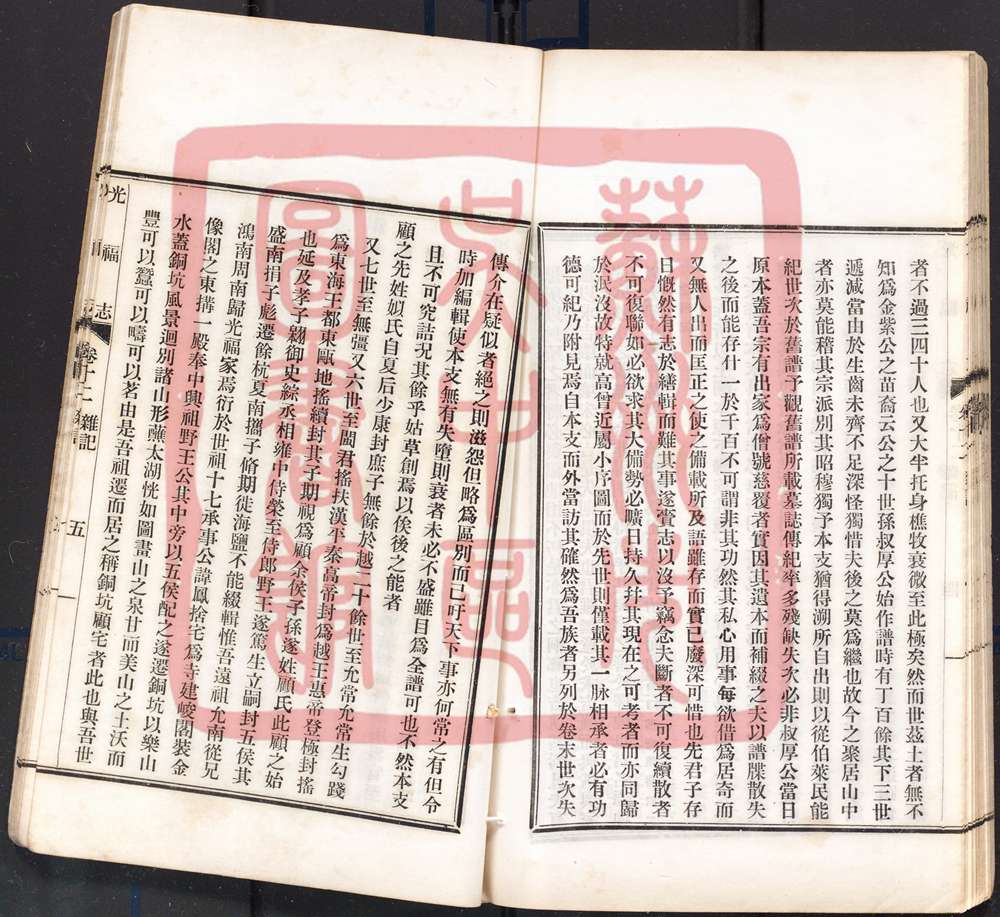 者不過三四十人也又大半托身樵牧衰微至此極矣然而世茲土者無不
知爲金紫公之苗裔云公之十世孫叔厚公始作譜時有丁百餘其下三世
遞減當由於生齒未齊不足深怪獨惜夫後之莫爲繼也故今之聚居山中
者亦莫能稽其宗派別其昭穆獨予本支猶得溯所自出則以從伯萊民能
紀世次於舊譜予觀舊譜所載墓誌傳紀率多殘缺失次必非叔厚公當日
原本蓋吾宗有出家爲僧號慈覆者實因其遺本而補綴之夫以譜牒散失
之後而能存什一於千百不可謂非其功然其私心用事每欲借爲居奇而
又無人出而匡正之使之備載所及語雖存而實已廢深可惜也先君子存
日慨然有志於繕輯而難其事遂賫志以沒予竊念夫斷者不可復續散者
不可復聯如必欲求其大備勢必曠日持久幷其現在之可考者而亦同歸
於泯沒故特就高曾近屬小序圖而於先世則僅載其一脈相承者必有功
德可紀乃附見焉自本支而外當訪其確然爲吾族者另列於卷末世次失
傳介在疑似者絕之則滋怨但略爲區別而已吁天下事亦何常之有但令
時加編輯使本支無有失墮則衰者未必不盛雖目爲全譜可也不然本支
且不可究詰況其餘乎姑草創焉以俟後之能者
顧之先姓姒氏自夏后少康封庶子無餘於越二十餘世至允常允常生勾踐
又七世至無彊又六世至閩君搖扶漢平秦高帝封爲越王惠帝登極封搖
爲東海王都東甌地搖續封其子期視爲顧余侯子孫遂姓顧氏此顧之始
也延及孝子翱御史綜丞相雍中侍榮至侍郎野王遂篤生立嗣封五侯其
盛南捐子彪遷餘杭夏南攜子脩期徙海鹽不能綴輯惟吾遠祖允南從兄
鴻南周南歸光福家焉衍於世祖十七承事公諱鳳捨宅爲寺建峻閣裝金
像閣之東搆一殿奉中興祖野王公其中旁以五侯配之遂遷銅坑以樂山
水蓋銅坑風景迴別諸山形蘸太湖恍如圖畫山之泉甘而美山之土沃而
豐可以蠶可以疇可以茗由是吾祖遷而居之稱銅坑顧宅者此也與吾世
光福志
卷十二 雜記
五
蘇州市吳中區圖書館